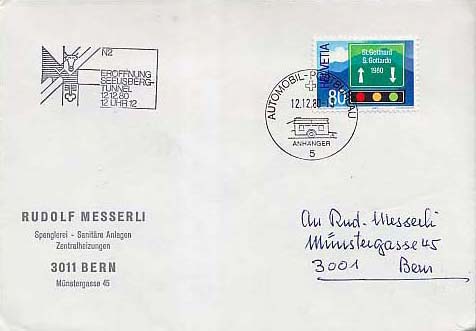 N2
ERÖFFNUNG
SEELISBERG-
TUNNEL
12.12.80
12 UHR 12
AUTOMOBIL-POSTBUREAU
12.12.80
ANHÄNGER
5
HELVETIA
80
St. Gotthard
S. Gottardo
1980
RUDOLF MESSERLI
Spenglerei - Sanitäre Anlagen
Zentralheizungen
3011 BERN
Münstergasse 45
An Rud. Messerli
Münstergasse 45
3001 Bern